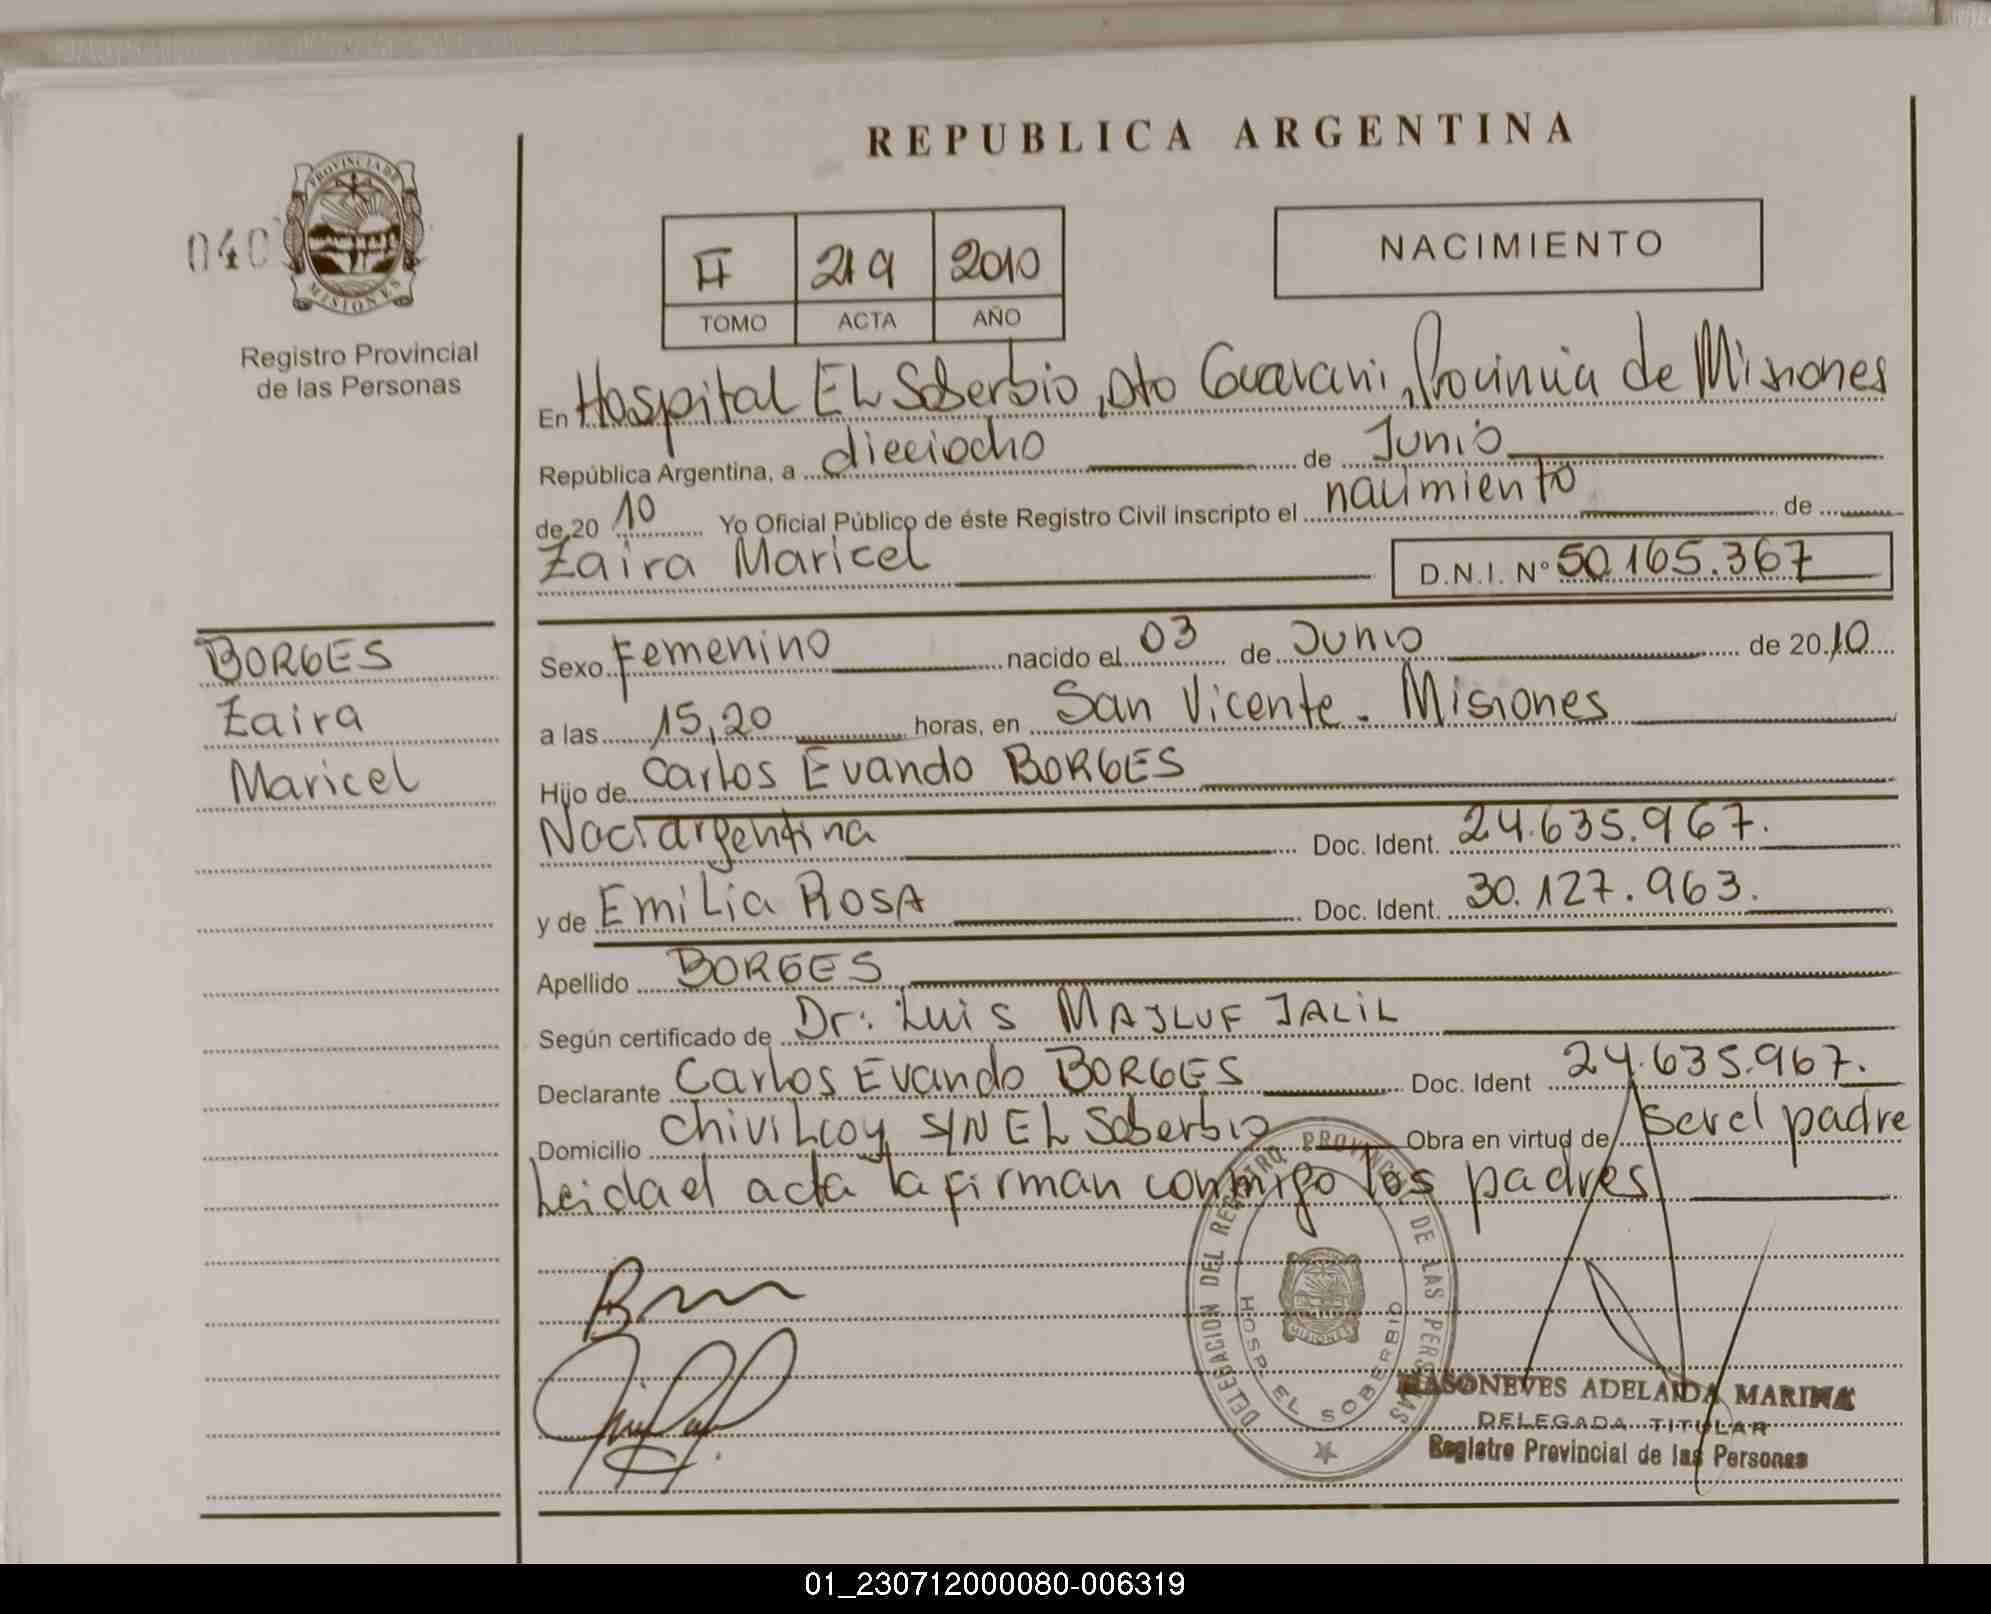 REPUBLICA ARGENTINA
040
PROVINCIA DE
MISIONES
Registro Provincial
de las Personas
II 219 2010
TOMO ACTA AÑO
NACIMIENTO
En Hospital EL Soberbio, Dto Guarani, Provincia de Misiones
República Argentina, a dieciocho de Junio
de 20 10 Yo Oficial Público de éste Registro Civil inscripto el nacimiento de
Zaira Maricel D.N.I. N° 50.165.367
BORGES
Zaira
Maricel
Sexo Femenino nacido el 03 de Junio de 20 10
a las 15,20 horas, en San Vicente - Misiones
Hijo de Carlos Evando BORGES
Nac: argentina Doc. Ident. 24.635.967.
y de Emilia ROSA Doc. Ident. 30.127.963.
Apellido BORGES
Según certificado de Dr: Luis MAJLUF JALIL
Declarante Carlos Evando BORGES Doc. Ident 24.635.967.
Domicilio Chivilcoy S/N EL Soberbio Obra en virtud de ser el padre
Leida el acta la firman conmigo los padres
DELEGACION DEL REGISTRO PROVINCIAL DE LAS PERSONAS
HOSP. EL SOBERBIO
MISIONES
MASONEVES ADELAIDA MARINA
DELEGADA TITULAR
Registro Provincial de las Personas
01_230712000080-006319